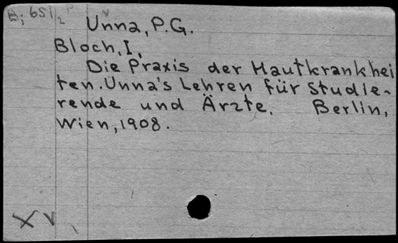 B; 651/2
Unna, P.G.
Bloch, I,
Die Praxis der Hautkrankhei
ten. Unna's Lehren für Studie-
rende und Ärzte. Berlin,
Wien, 1908.
XV